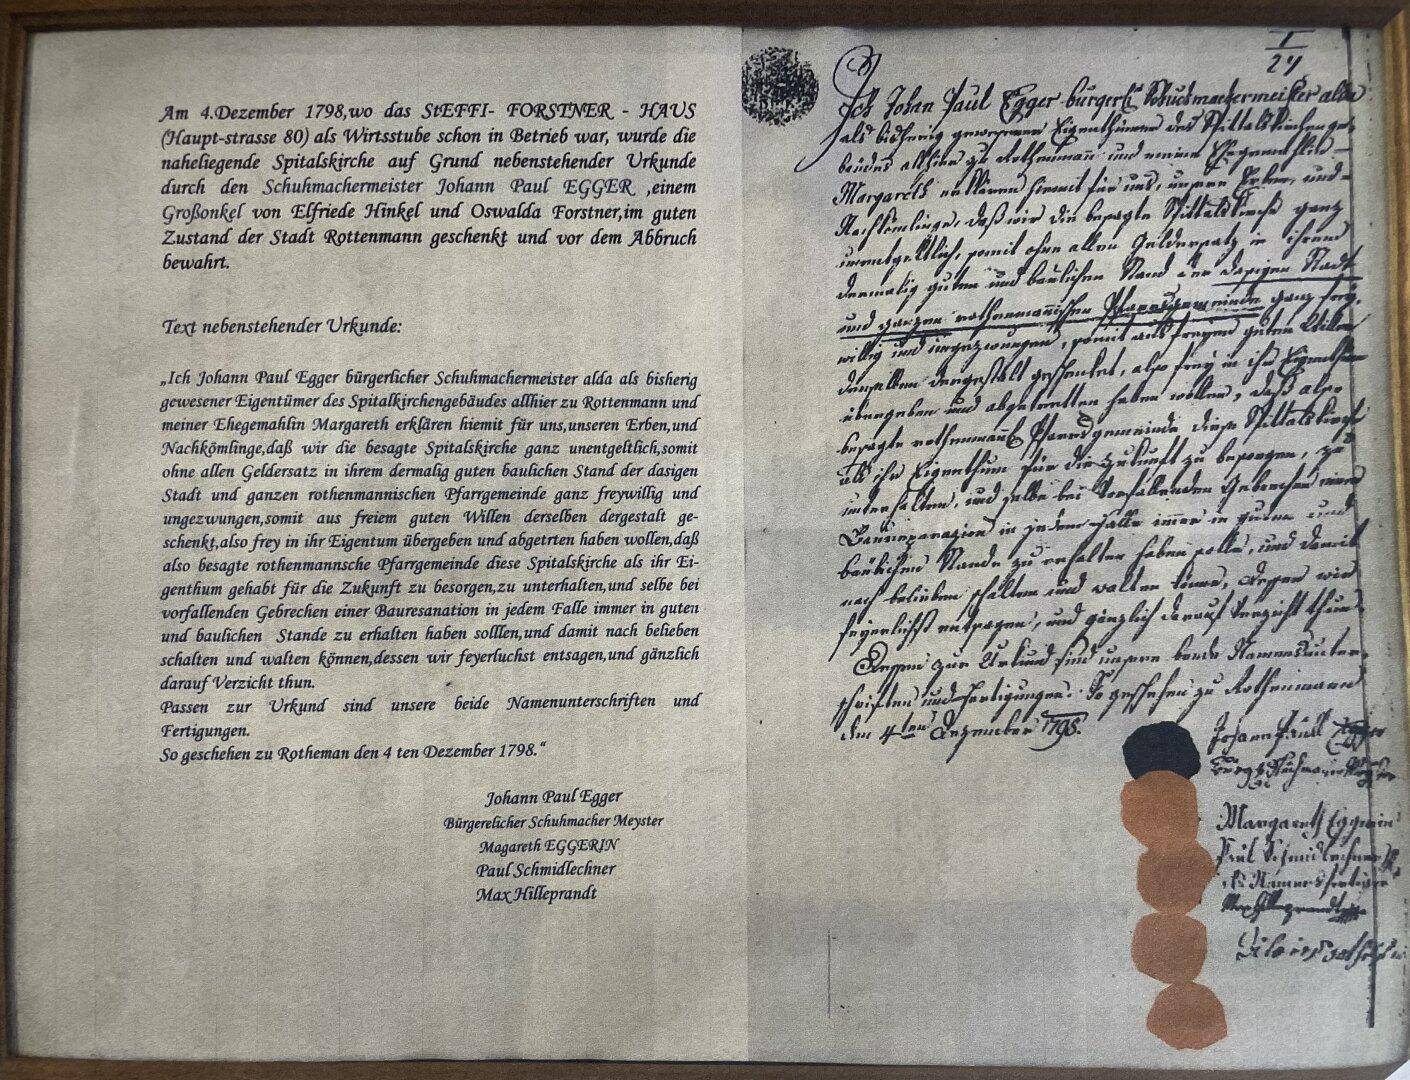 Am 4.Dezember 1798,wo das StEFFI- FORSTNER - HAUS
(Haupt-strasse 80) als Wirtsstube schon in Betrieb war, wurde die
naheliegende Spitalskirche auf Grund nebenstehender Urkunde
durch den Schuhmachermeister Johann Paul EGGER ,einem
Großonkel von Elfriede Hinkel und Oswalda Forstner,im guten
Zustand der Stadt Rottenmann geschenkt und vor dem Abbruch
bewahrt.
Text nebenstehender Urkunde:
„Ich Johann Paul Egger bürgerlicher Schuhmachermeister alda als bisherig
gewesener Eigentümer des Spitalkirchengebäudes allhier zu Rottenmann und
meiner Ehegemahlin Margareth erklären hiemit für uns,unseren Erben,und
Nachkömlinge,daß wir die besagte Spitalskirche ganz unentgeltlich,somit
ohne allen Geldersatz in ihrem dermalig guten baulichen Stand der dasigen
Stadt und ganzen rothenmannischen Pfarrgemeinde ganz freywillig und
ungezwungen,somit aus freiem guten Willen derselben dergestalt ge-
schenkt,also frey in ihr Eigentum übergeben und abgetrten haben wollen,daß
also besagte rothenmannsche Pfarrgemeinde diese Spitalskirche als ihr Ei-
genthum gehabt für die Zukunft zu besorgen,zu unterhalten,und selbe bei
vorfallenden Gebrechen einer Bauresanation in jedem Falle immer in guten
und baulichen Stande zu erhalten haben solllen,und damit nach belieben
schalten und walten können,dessen wir feyerluchst entsagen,und gänzlich
darauf Verzicht thun.
Passen zur Urkund sind unsere beide Namenunterschriften und
Fertigungen.
So geschehen zu Rotheman den 4 ten Dezember 1798.“
Johann Paul Egger
Bürgerelicher Schuhmacher Meyster
Magareth EGGERIN
Paul Schmidlechner
Max Hilleprandt
I
24
Ich Johan Paul Egger bürgerl. Schuchmachermeister alda
als bisherig gewesener Eigenthümer des Spittalskirchenge-
bäudes allhier zu Rothenmann und meine Ehegemahlin
Margareth erklären hiemit für uns, unsere Erben, und
Nachkömlinge, daß wir die besagte Spittalskirche ganz
unentgeltlich, somit ohne allen Geldersatz in ihrem
dermalig guten und baulichen Stand der dasigen Stadt
und ganzen rothenmannischen Pfarrsgemeinde ganz frey-
willig und ungezwungen, somit aus freyen guten Willen
derselben dergestalt geschenket, also frey in ihr Eigenthum
übergeben und abgetretten haben wollen, daß also
besagte rothenmann. Pfarrsgemeinde diese Spittalskirche
als ihr Eigenthum für die Zukunft zu besorgen, zu
unterhalten, und selbe bei vorfallenden Gebrechen einer
Baureparazion in jedem Falle immer in guten und
baulichen Stande zu erhalten haben solle, und damit
nach belieben schalten und walten könne, dessen wir
feyerlichst entsagen, und gänzlich darauf Verzicht thun.
Dessen zur Urkund sind unsere beede Namensunter-
schriften und Fertigungen. So geschehen zu Rothenmann
den 4ten Dezember 1798.
Johann Paull Egger
Margareth Eggerin
Paul Schmidlechner